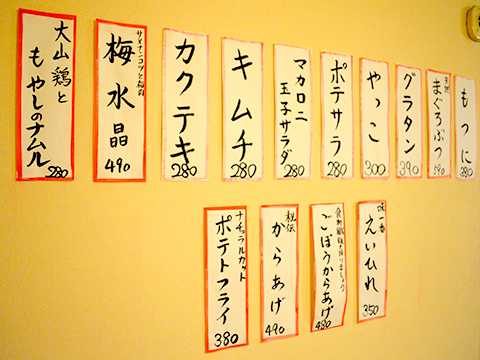 もつに
380
天然
まぐろぶつ
590
グラタン
390
やっこ
300
ポテサラ
280
マカロニ
玉子サラダ
280
キムチ
280
カクテキ
280
梅水晶
490
大山鶏と
もやしのナムル
280
味一番
えいひれ
350
食物繊維を採りましょう
ごぼうからあげ
480
秘伝
からあげ
490
ナチュラルカット
ポテトフライ
380